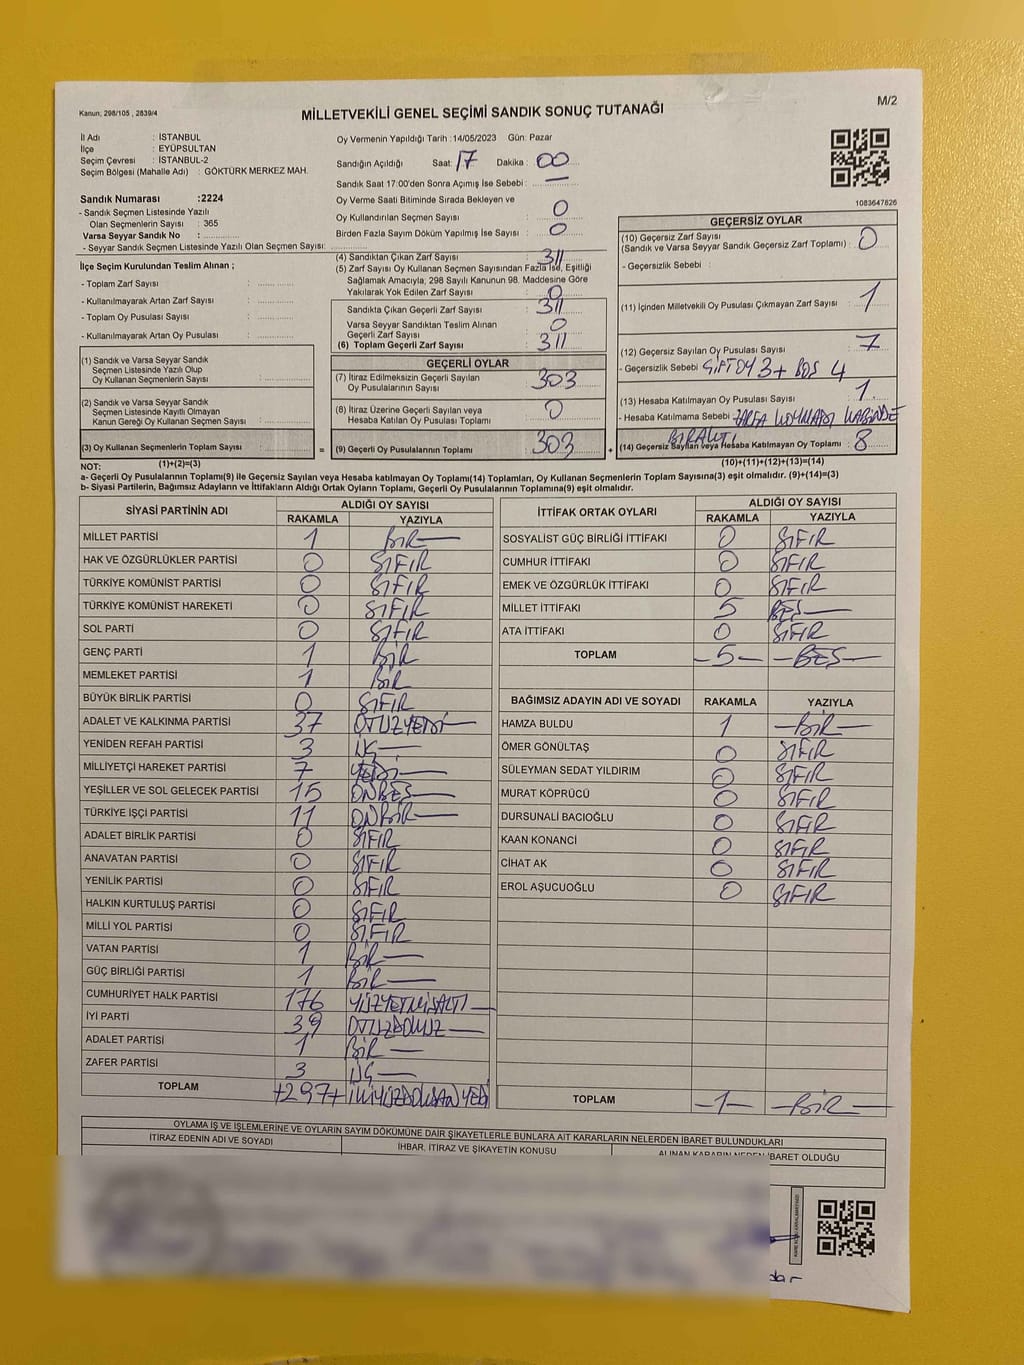 Kanun; 298/105 , 2839/4
MİLLETVEKİLİ GENEL SEÇİMİ SANDIK SONUÇ TUTANAĞI
M/2
İl Adı : İSTANBUL
İlçe : EYÜPSULTAN
Seçim Çevresi : İSTANBUL-2
Seçim Bölgesi (Mahalle Adı) : GÖKTÜRK MERKEZ MAH.
Sandık Numarası :2224
- Sandık Seçmen Listesinde Yazılı
Olan Seçmenlerin Sayısı : 365
Varsa Seyyar Sandık No :
- Seyyar Sandık Seçmen Listesinde Yazılı Olan Seçmen Sayısı:
Oy Vermenin Yapıldığı Tarih :14/05/2023 Gün: Pazar
Sandığın Açıldığı Saat: 17 Dakika : 00
Sandık Saat 17:00'den Sonra Açımış İse Sebebi : —
Oy Verme Saati Bitiminde Sırada Bekleyen ve
Oy Kullandırılan Seçmen Sayısı : 0
Birden Fazla Sayım Döküm Yapılmış İse Sayısı : 0
1083647826
İlçe Seçim Kurulundan Teslim Alınan ;
- Toplam Zarf Sayısı :
- Kullanılmayarak Artan Zarf Sayısı :
- Toplam Oy Pusulası Sayısı :
- Kullanılmayarak Artan Oy Pusulası :
(1) Sandık ve Varsa Seyyar Sandık
Seçmen Listesinde Yazılı Olup
Oy Kullanan Seçmenlerin Sayısı :
(2) Sandık ve Varsa Seyyar Sandık
Seçmen Listesinde Kayıtlı Olmayan
Kanun Gereği Oy Kullanan Seçmen Sayısı :
(3) Oy Kullanan Seçmenlerin Toplam Sayısı :
(1)+(2)=(3)
(4) Sandıktan Çıkan Zarf Sayısı : 311
(5) Zarf Sayısı Oy Kullanan Seçmen Sayısından Fazla İse, Eşitliği
Sağlamak Amacıyla, 298 Sayılı Kanunun 98. Maddesine Göre
Yakılarak Yok Edilen Zarf Sayısı : 0
Sandıkta Çıkan Geçerli Zarf Sayısı : 311
Varsa Seyyar Sandıktan Teslim Alınan
Geçerli Zarf Sayısı : 0
(6) Toplam Geçerli Zarf Sayısı : 311
GEÇERLİ OYLAR
(7) İtiraz Edilmeksizin Geçerli Sayılan
Oy Pusulalarının Sayısı : 303
(8) İtiraz Üzerine Geçerli Sayılan veya
Hesaba Katılan Oy Pusulası Toplamı : 0
= (9) Geçerli Oy Pusulalarının Toplamı : 303 +
GEÇERSİZ OYLAR
(10) Geçersiz Zarf Sayısı
(Sandık ve Varsa Seyyar Sandık Geçersiz Zarf Toplamı) : 0
- Geçersizlik Sebebi :
(11) İçinden Milletvekili Oy Pusulası Çıkmayan Zarf Sayısı : 1
(12) Geçersiz Sayılan Oy Pusulası Sayısı : 7
- Geçersizlik Sebebi ÇİFT OY 3 + BOŞ 4
(13) Hesaba Katılmayan Oy Pusulası Sayısı : 1
- Hesaba Katılmama Sebebi : ZARFA KOYMADI KABİNDE
BIRAKTI
(14) Geçersiz Sayılan veya Hesaba Katılmayan Oy Toplamı : 8
(10)+(11)+(12)+(13)=(14)
NOT:
a- Geçerli Oy Pusulasının Toplamı(9) ile Geçersiz Sayılan veya Hesaba katılmayan Oy Toplamı(14) Toplamları, Oy Kullanan Seçmenlerin Toplam Sayısına(3) eşit olmalıdır. (9)+(14)=(3)
b- Siyasi Partilerin, Bağımsız Adayların ve İttifakların Aldığı Ortak Oyların Toplamı, Geçerli Oy Pusulasının Toplamına(9) eşit olmalıdır.
SİYASİ PARTİNİN ADI ALDIĞI OY SAYISI
RAKAMLA YAZIYLA
MİLLET PARTİSİ 1 BİR
HAK VE ÖZGÜRLÜKLER PARTİSİ 0 SIFIR
TÜRKİYE KOMÜNİST PARTİSİ 0 SIFIR
TÜRKİYE KOMÜNİST HAREKETİ 0 SIFIR
SOL PARTİ 0 SIFIR
GENÇ PARTİ 1 BİR
MEMLEKET PARTİSİ 1 BİR
BÜYÜK BİRLİK PARTİSİ 0 SIFIR
ADALET VE KALKINMA PARTİSİ 37 OTUZYEDİ
YENİDEN REFAH PARTİSİ 3 ÜÇ
MİLLİYETÇİ HAREKET PARTİSİ 7 YEDİ
YEŞİLLER VE SOL GELECEK PARTİSİ 15 ONBEŞ
TÜRKİYE İŞÇİ PARTİSİ 11 ONBİR
ADALET BİRLİK PARTİSİ 0 SIFIR
ANAVATAN PARTİSİ 0 SIFIR
YENİLİK PARTİSİ 0 SIFIR
HALKIN KURTULUŞ PARTİSİ 0 SIFIR
MİLLİ YOL PARTİSİ 0 SIFIR
VATAN PARTİSİ 1 BİR
GÜÇ BİRLİĞİ PARTİSİ 1 BİR
CUMHURİYET HALK PARTİSİ 176 YÜZYETMİŞALTI
İYİ PARTİ 39 OTUZDOKUZ
ADALET PARTİSİ 1 BİR
ZAFER PARTİSİ 3 ÜÇ
TOPLAM +297+ İKİYÜZDOKSANYEDİ
İTTİFAK ORTAK OYLARI ALDIĞI OY SAYISI
RAKAMLA YAZIYLA
SOSYALİST GÜÇ BİRLİĞİ İTTİFAKI 0 SIFIR
CUMHUR İTTİFAKI 0 SIFIR
EMEK VE ÖZGÜRLÜK İTTİFAKI 0 SIFIR
MİLLET İTTİFAKI 5 BEŞ
ATA İTTİFAKI 0 SIFIR
TOPLAM -5- -BEŞ-
BAĞIMSIZ ADAYIN ADI VE SOYADI RAKAMLA YAZIYLA
HAMZA BULDU 1 -BİR-
ÖMER GÖNÜLTAŞ 0 SIFIR
SÜLEYMAN SEDAT YILDIRIM 0 SIFIR
MURAT KÖPRÜCÜ 0 SIFIR
DURSUNALİ BACIOĞLU 0 SIFIR
KAAN KONANCİ 0 SIFIR
CİHAT AK 0 SIFIR
EROL AŞUCUOĞLU 0 SIFIR
TOPLAM -1- -BİR-
OYLAMA İŞ VE İŞLEMLERİNE VE OYLARIN SAYIM DÖKÜMÜNE DAİR ŞİKAYETLERLE BUNLARA AİT KARARLARIN NELERDEN İBARET BULUNDUKLARI
İTİRAZ EDENİN ADI VE SOYADI İHBAR, İTİRAZ VE ŞİKAYETİN KONUSU ALINAN KARARIN NEDEN İBARET OLDUĞU